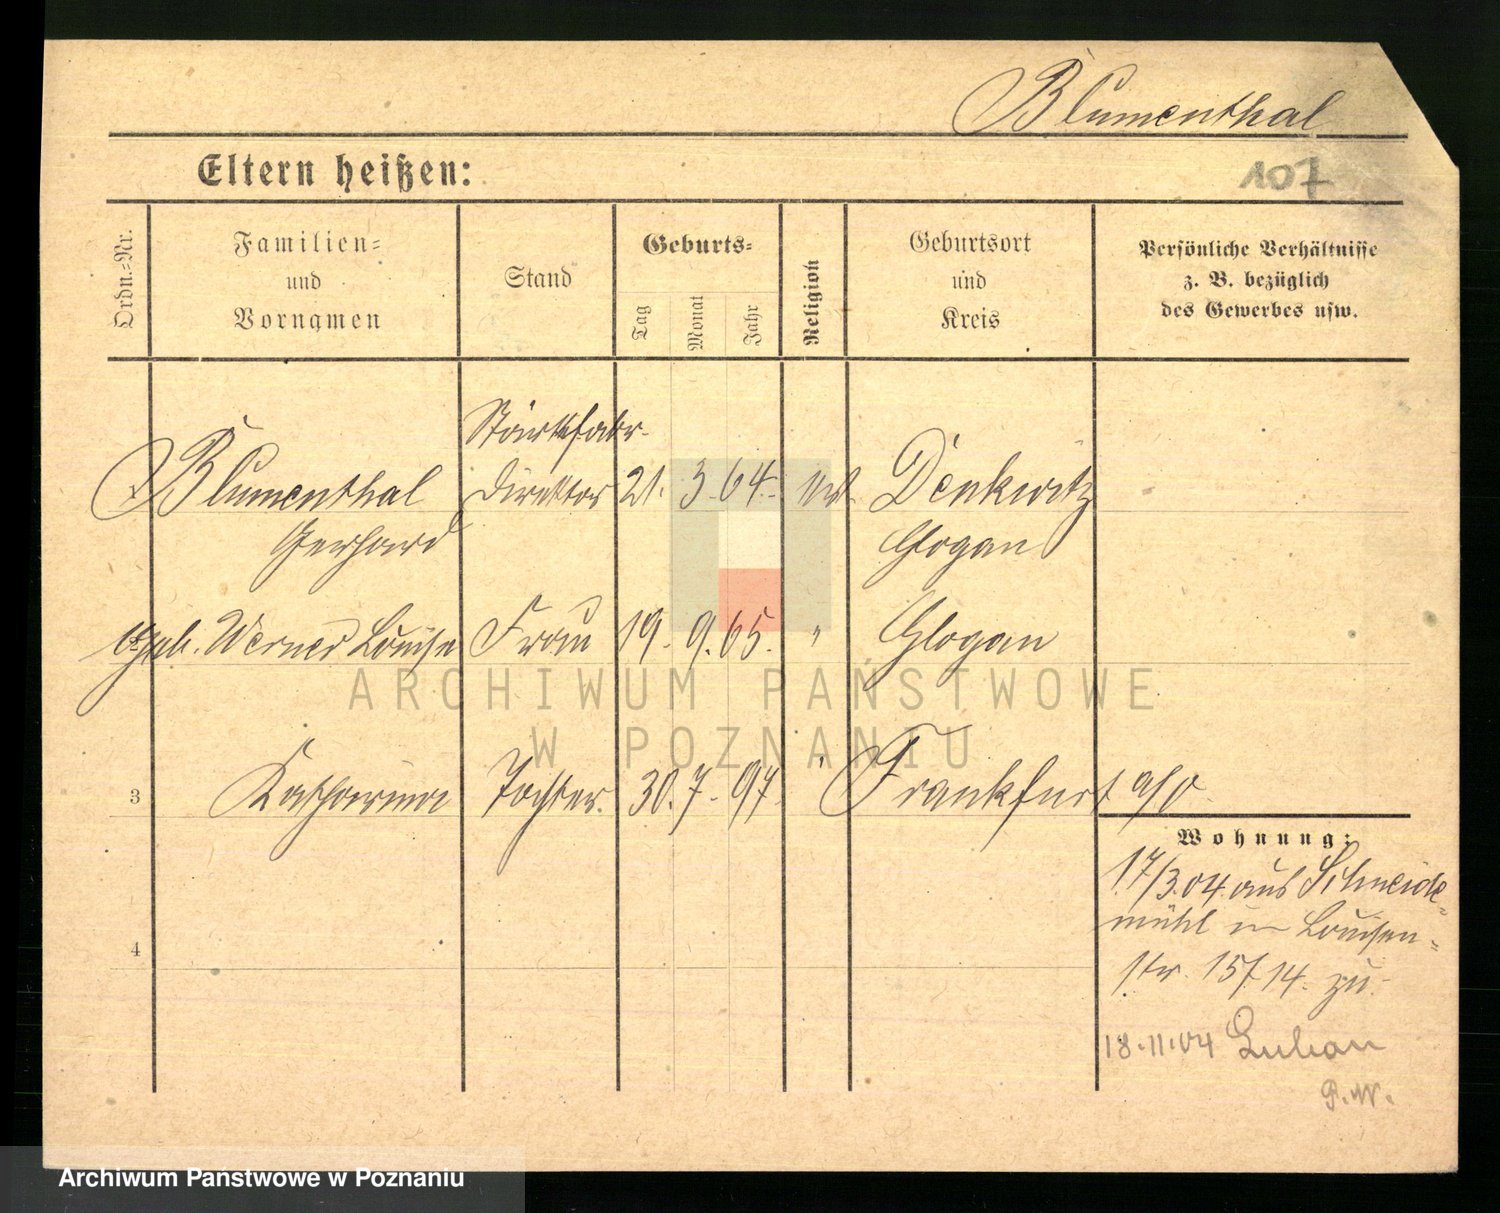 Blumenthal
Eltern heißen:
107
Ordn.-Nr.
Familien-
und
Vornamen
Stand
Geburts-
Tag
Monat
Jahr
Religion
Geburtsort
und
Kreis
Persönliche Verhältnisse
z. B. bezüglich
des Gewerbes usw.
Blumenthal
Gerhard
Stärkefabr.
Direktor
21. 3. 64.
Denkwitz
Glogau
geb. Werner Louise
Frau
19. 9. 65.
"
Glogau
3
Katharina
Tochter.
30. 7. 97
"
Frankfurt a/O.
Wohnung:
17/3.04. aus Schneide-
mühl in Louisen-
str. 15 / 14. zu.
4
18.11.04
P.W.
ARCHIWUM PAŃSTWOWE
W POZNANIU
Archiwum Państwowe w Poznaniu